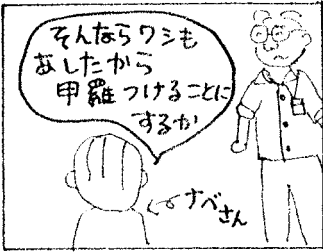 そんならワシも
あしたから
甲羅つけることに
するか
ナベさん